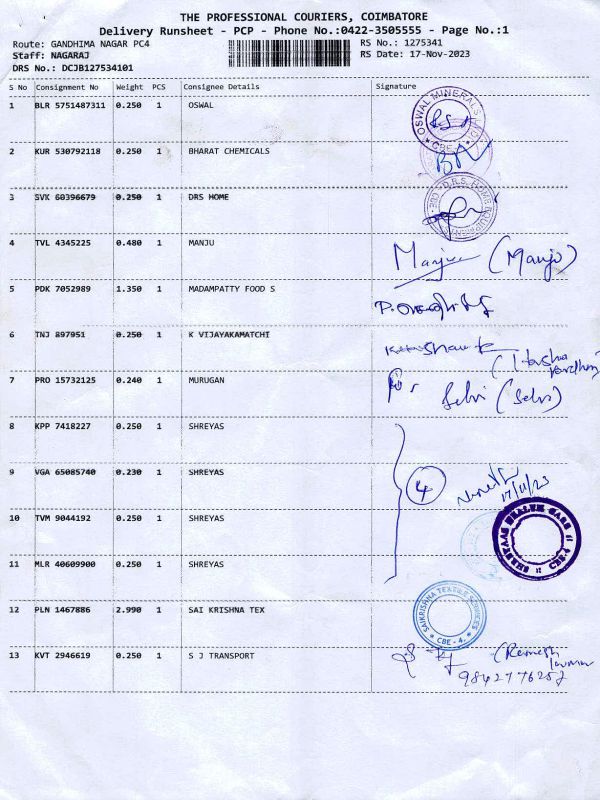 THE PROFESSIONAL COURIERS, COIMBATORE
Delivery Runsheet - PCP - Phone No.:0422-3505555 - Page No.:1
Route: GANDHIMA NAGAR PC4 RS No.: 1275341
Staff: NAGARAJ RS Date: 17-Nov-2023
DRS No.: DCJB127534101
S No Consignment No Weight PCS Consignee Details Signature
1 BLR 5751487311 0.250 1 OSWAL
OSWAL MINERALS CBE
2 KUR 530792118 0.250 1 BHARAT CHEMICALS
3 SVK 60396679 0.250 1 DRS HOME
D.R.S. HOME
4 TVL 4345225 0.480 1 MANJU Manju (Manju)
5 PDK 7052989 1.350 1 MADAMPATTY FOOD S
6 TNJ 897951 0.250 1 K VIJAYAKAMATCHI
(Harsha
vardhan)
7 PRO 15732125 0.240 1 MURUGAN Selvi (Selvi)
8 KPP 7418227 0.250 1 SHREYAS
9 VGA 65085740 0.230 1 SHREYAS 4 17/11/23
10 TVM 9044192 0.250 1 SHREYAS
HEALTH CARE
11 MLR 40609900 0.250 1 SHREYAS
12 PLN 1467886 2.990 1 SAI KRISHNA TEX
SAIKRISHNA TEXTILE SERVICES CBE - 4.
13 KVT 2946619 0.250 1 S J TRANSPORT